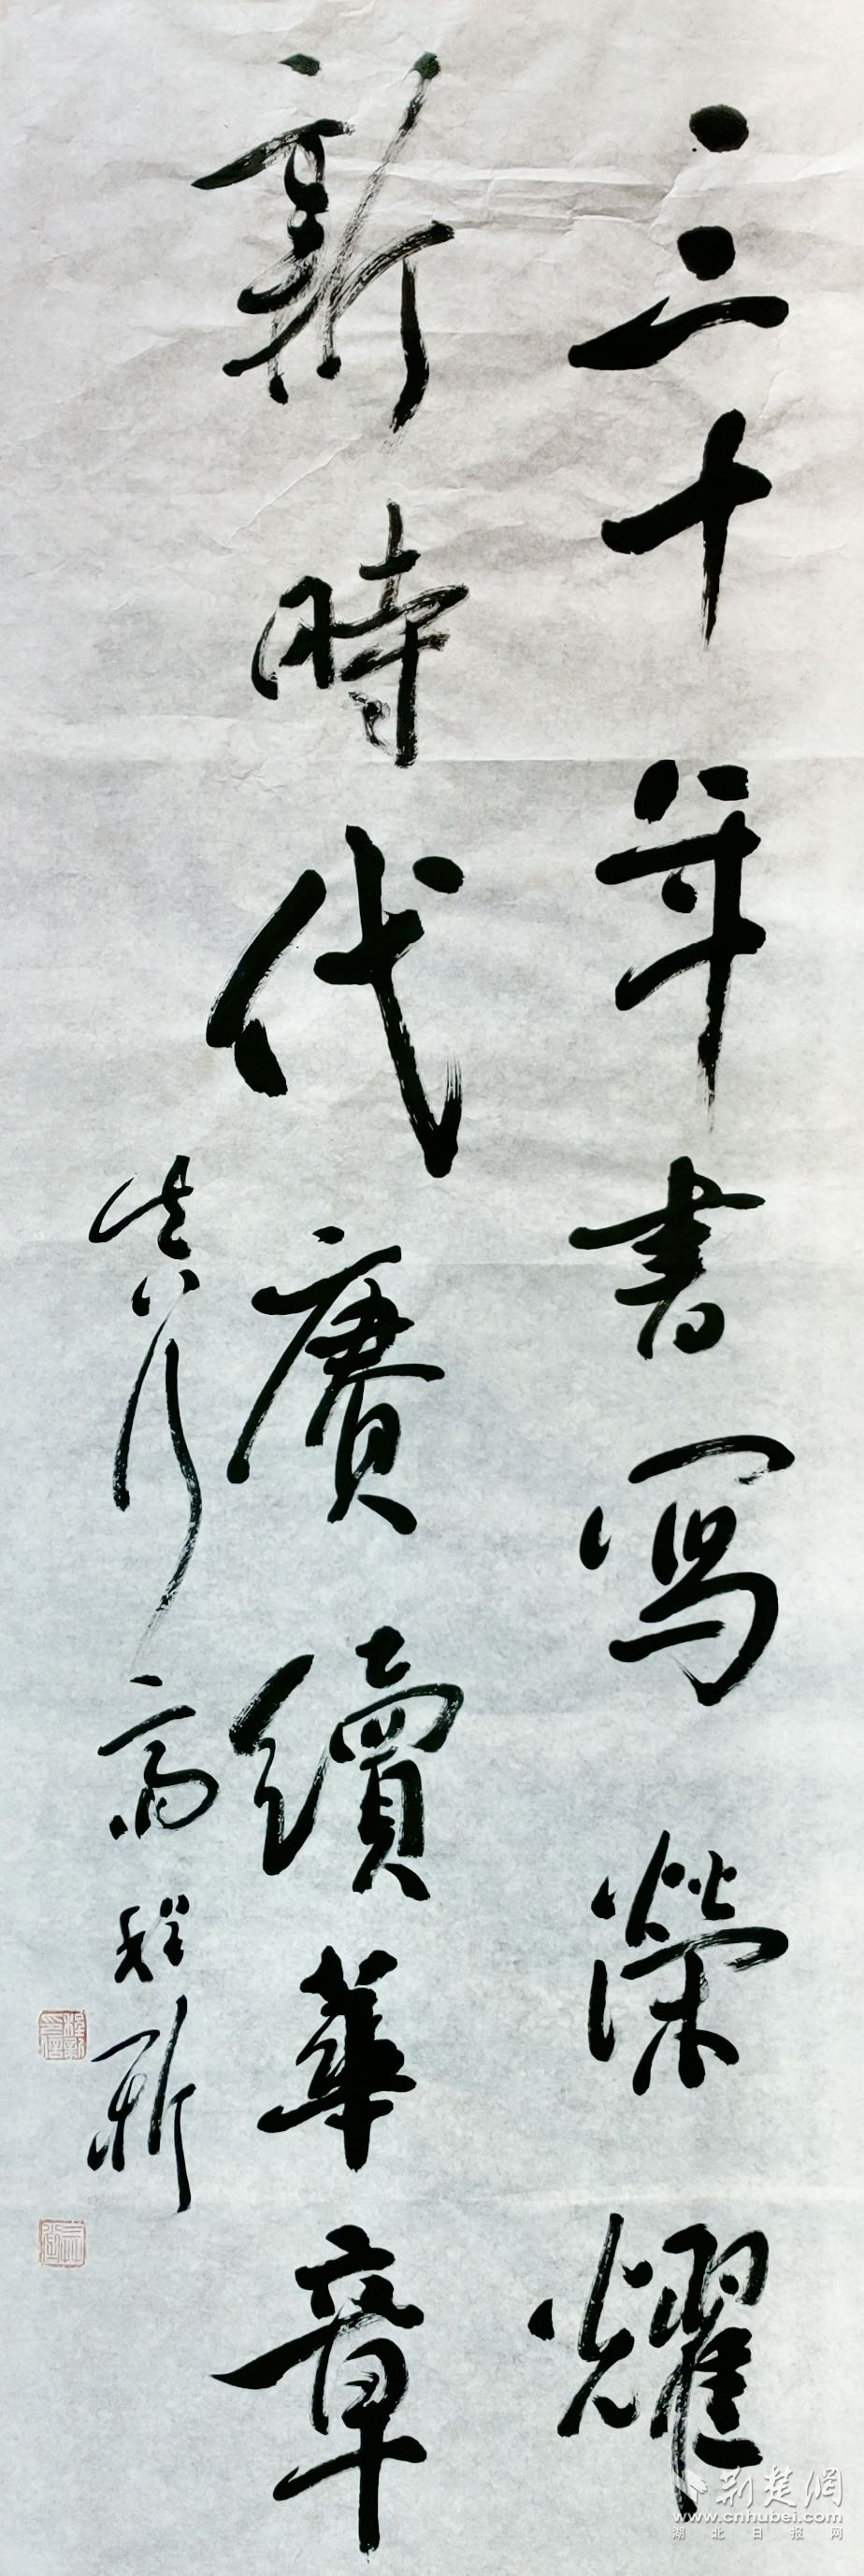 三十年書寫榮耀
新時代賡續華章
高程新
荆楚網
www.cnhubei.com
湖北日报网